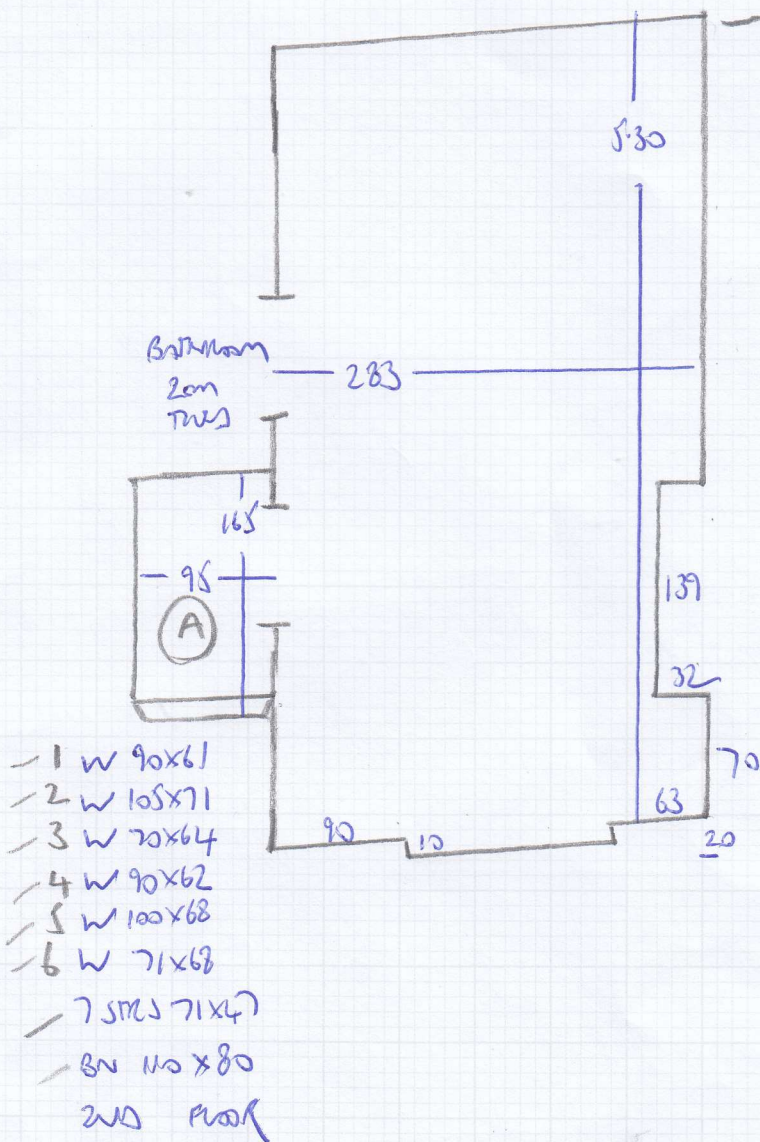 5.30
BATHROOM
2cm
283
165
95
A
139
32
70
63
90
10
20
1 W 90x61
2 W 105x71
3 W 70x64
4 W 90x62
5 W 100x68
6 W 71x68
7 STRS 71x47
BN 110x80
2ND FLOOR